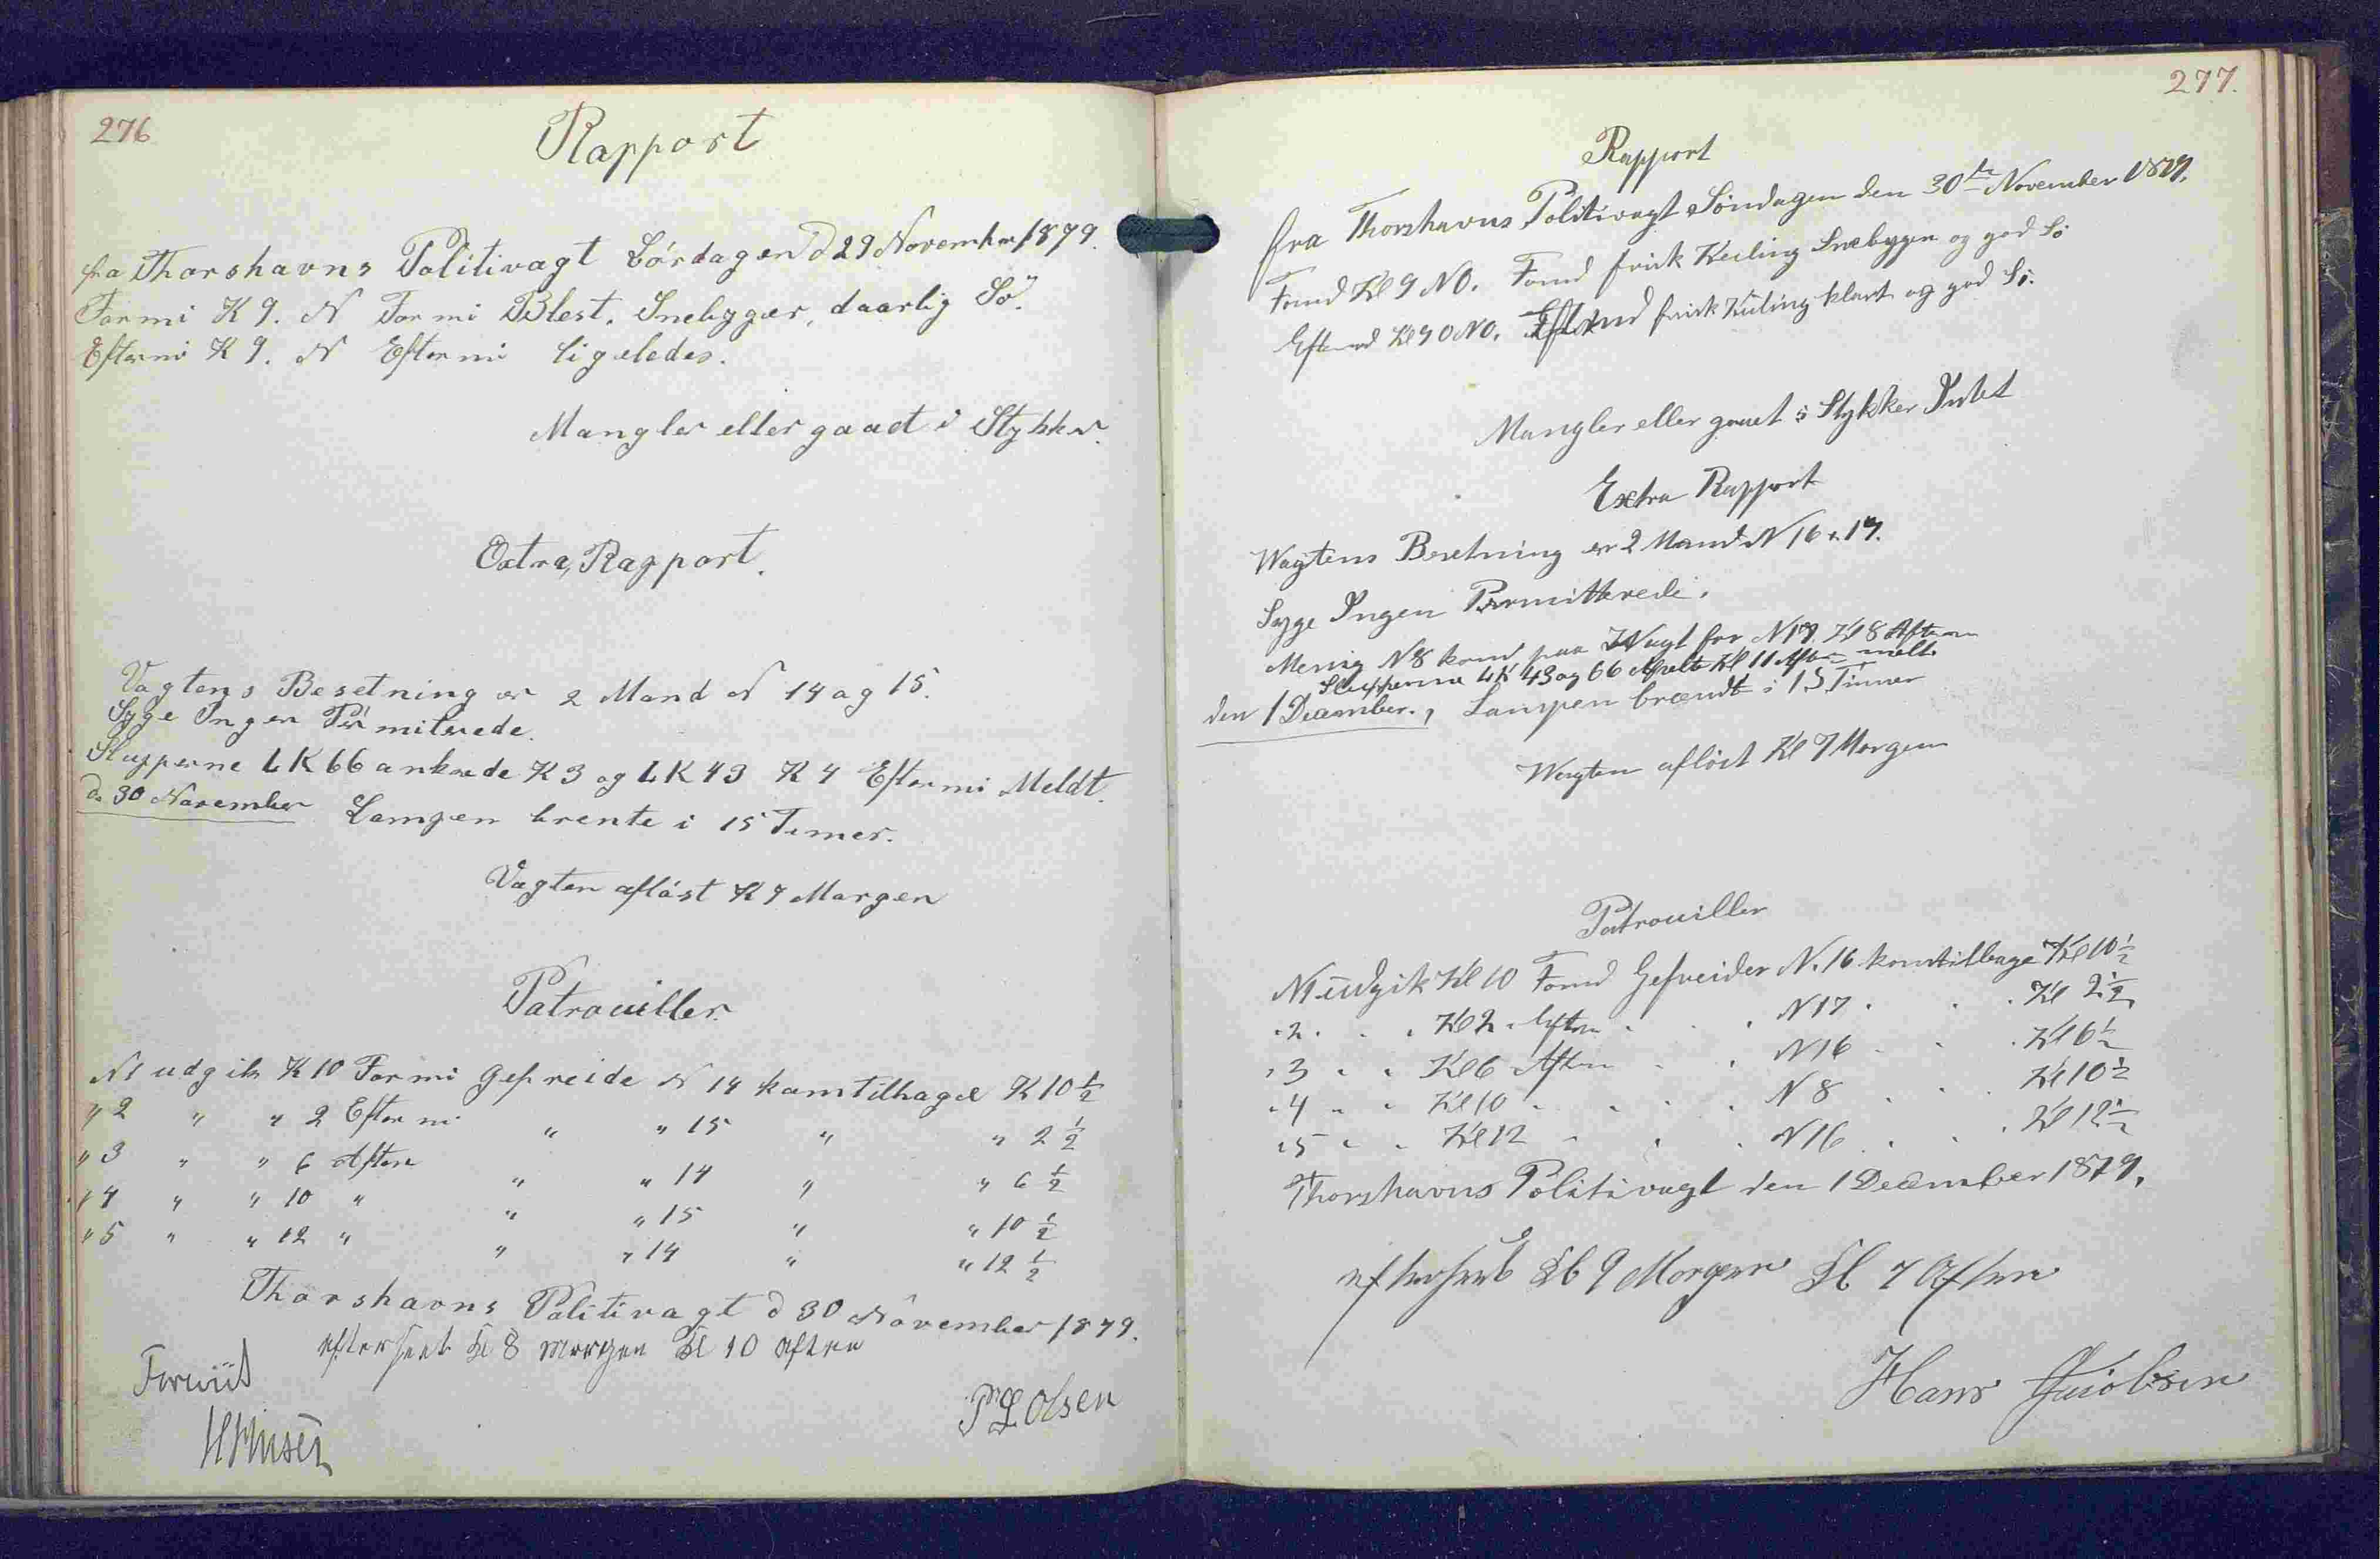 276
Rapport
fra Thorshavns Politivagt Lördagen d 29 November 1879.
Formi K 9. N Formi Blest. Snebyger, daarlig Sö.
Eftermi K 9. N Eftermi ligeledes.
Mangler eller gaaet i Stykker.
Extra, Rapport.
Vagtens Besetning er 2 Mand N 14 og 15.
Syge Ingen Permiterede.
Slupperne LK 66 ankrede K 3 og LK 43 K 4 Eftermi Meldt.
d. 30 November Lampen brente i 15 Timer.
Vagten aflöst K 7 Morgen
Patrouiller.
N1 udgik K 10 Formi Gefreide N 14 komtilbage K 10 1/2
" 2 " " 2 Eftermi " " 15 " " 2 1/2
" 3 " " 6 Aften " " 14 " " 6 1/2
" 4 " " 10 " " " 15 " " 10 1/2
" 5 " " 12 " " " 14 " " 12 1/2
Thorshavns Politivagt d 30 November 1879.
efterseet Kl 8 Morgen Kl 10 Aften
P L Olsen
277.
Rapport
fra Thorshavns Politivagt Söndagen den 30te November 1879.
Formd Kl 9 NO. Formd frisk Kuling Snebyger og god Sö
Eftermd Kl 9 ONO. Eftmd frisk Kuling klart og god Sö.
Mangler eller gaaet i Stykker Intet
Extra Rapport
Wagtens Besetning er 2 Mand N 16 & 17.
Syge Ingen Permitterede.
Menig N 8 kom paa Wagt for N 17. Kl 8 Aften
Slupperne LK 43 og 66 Kl 11 Aften melt.
den 1 December. , Lampen brændt i 15 Timer
Wagten aflöst Kl 7 Morgen
Patrouiller
N1 udgik Kl 10 Formd Gefreider N. 16 komtilbage Kl 10 1/2
" 2 " " Kl 2 Eftm " " N 17 " " Kl 2 1/2
" 3 " " Kl 6 Aften " " N 16 " " Kl 6 1/2
" 4 " " Kl 10 " " " N 8 " " Kl 10 1/2
" 5 " " Kl 12 " " " N 16 " " Kl 12 1/2
Thorshavns Politivagt den 1 December 1879.
efterseet Kl 9 Morgen Kl 7 Aften
Hans Jacobsen